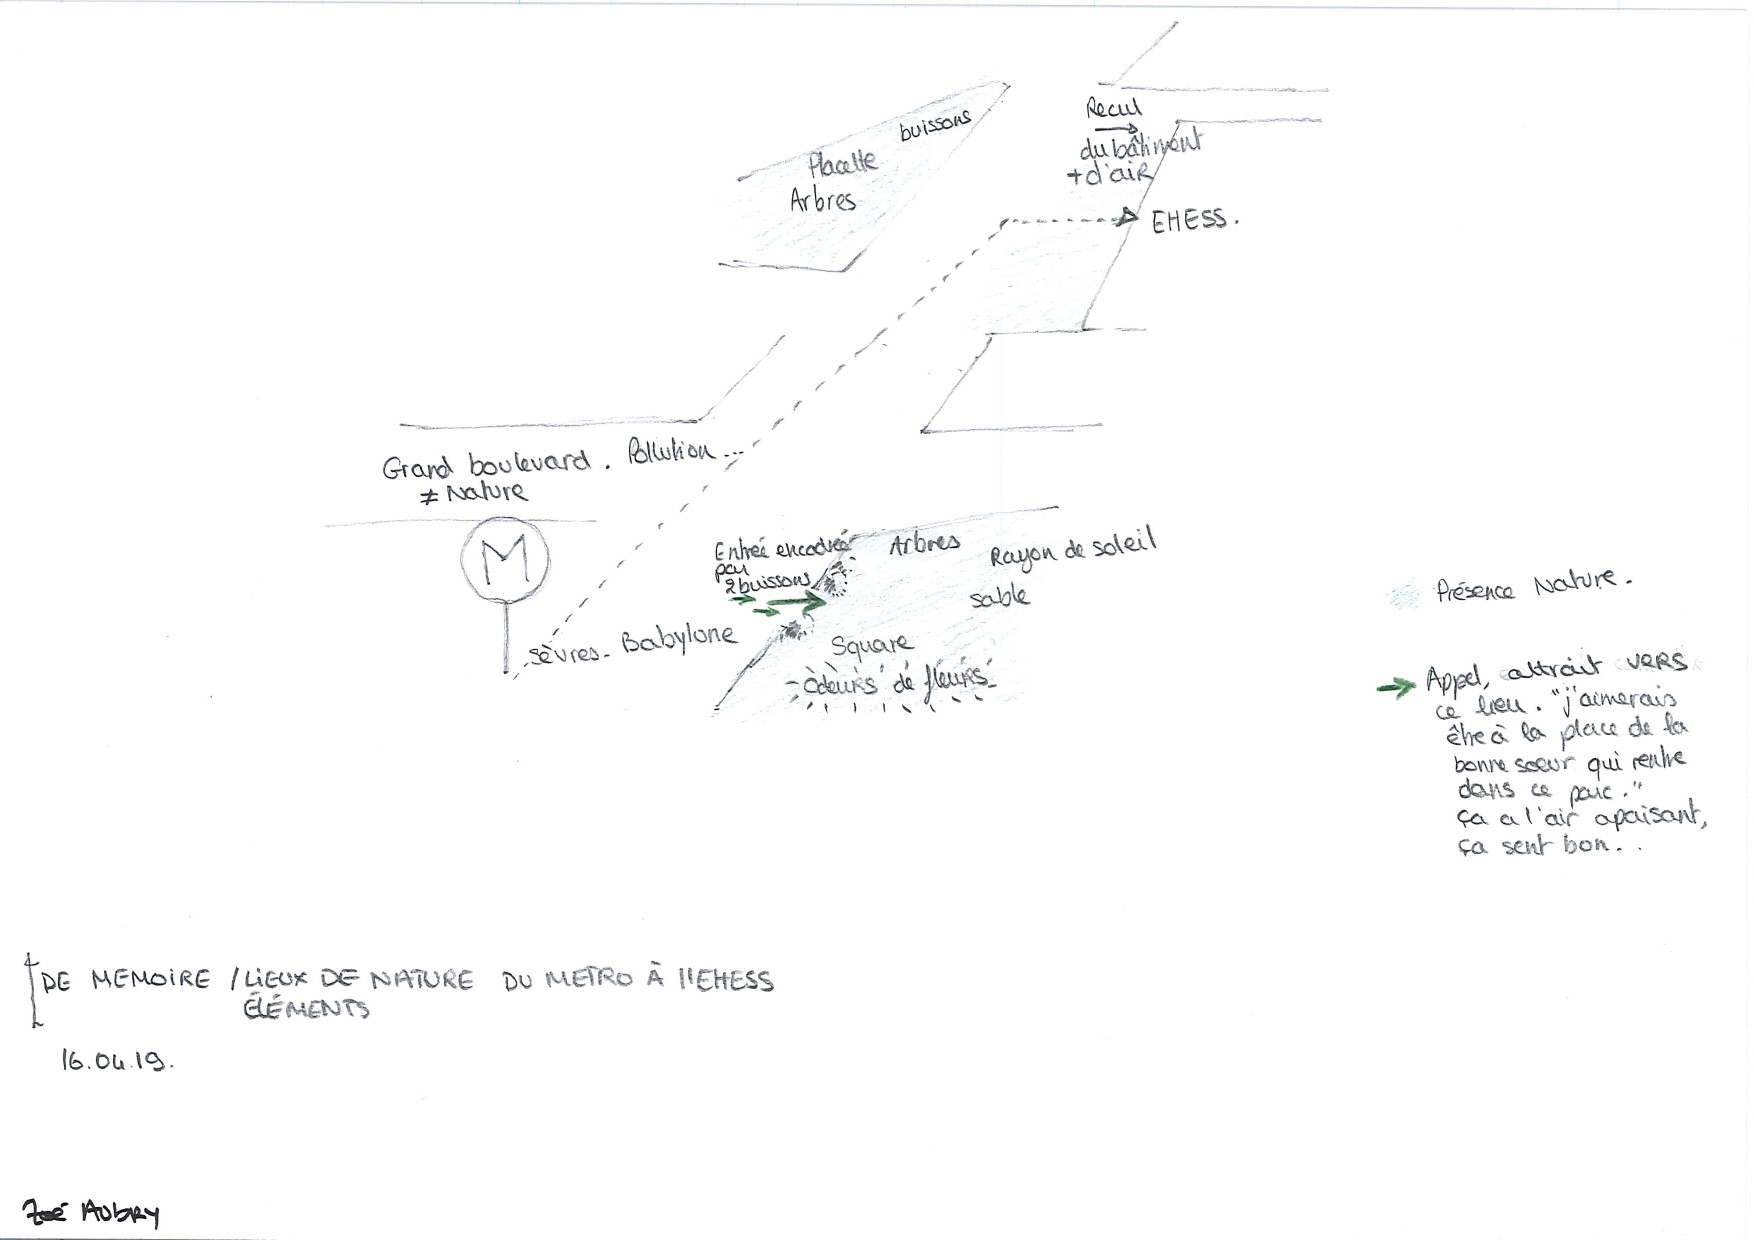 buissons
Placette
Arbres
Recul
du bâtiment
+ d'aiR
EHESS.
Grand boulevard. Pollution...
≠ Nature
M
Sèvres-Babylone
Entrée encadrée
par
2 buissons
Arbres
Rayon de soleil
sable
Square
- Odeurs de fleurs -
Présence Nature.
→ Appel, attrait VERS
ce lieu. "j'aimerais
être à la place de la
bonne soeur qui rentre
dans ce parc."
ça a l'air apaisant,
ça sent bon..
DE MEMOIRE / LIEUX DE NATURE DU METRO À l'EHESS
ÉLÉMENTS
16.04.19.
Zoé AUBRY